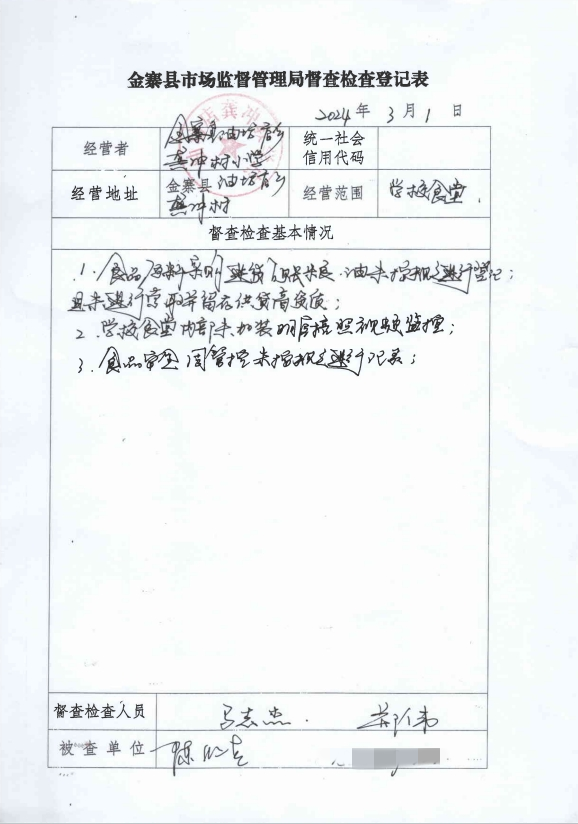 金寨县市场监督管理局督查检查登记表
2024 年 3 月 1 日
经营者 金寨县油坊店乡
龚冲村小学
统一社会
信用代码
经营地址 金寨县油坊店乡
龚冲村
经营范围 学校食堂
督查检查基本情况
1. 食品原料采购 进货 米 油未按规定进行登记;
且未进行索取并留存供货商资质;
2. 学校食堂内部未加装明厨亮照视频监控;
3. 食品 周管控未按规定进行记录;
督查检查人员
被查单位 陈